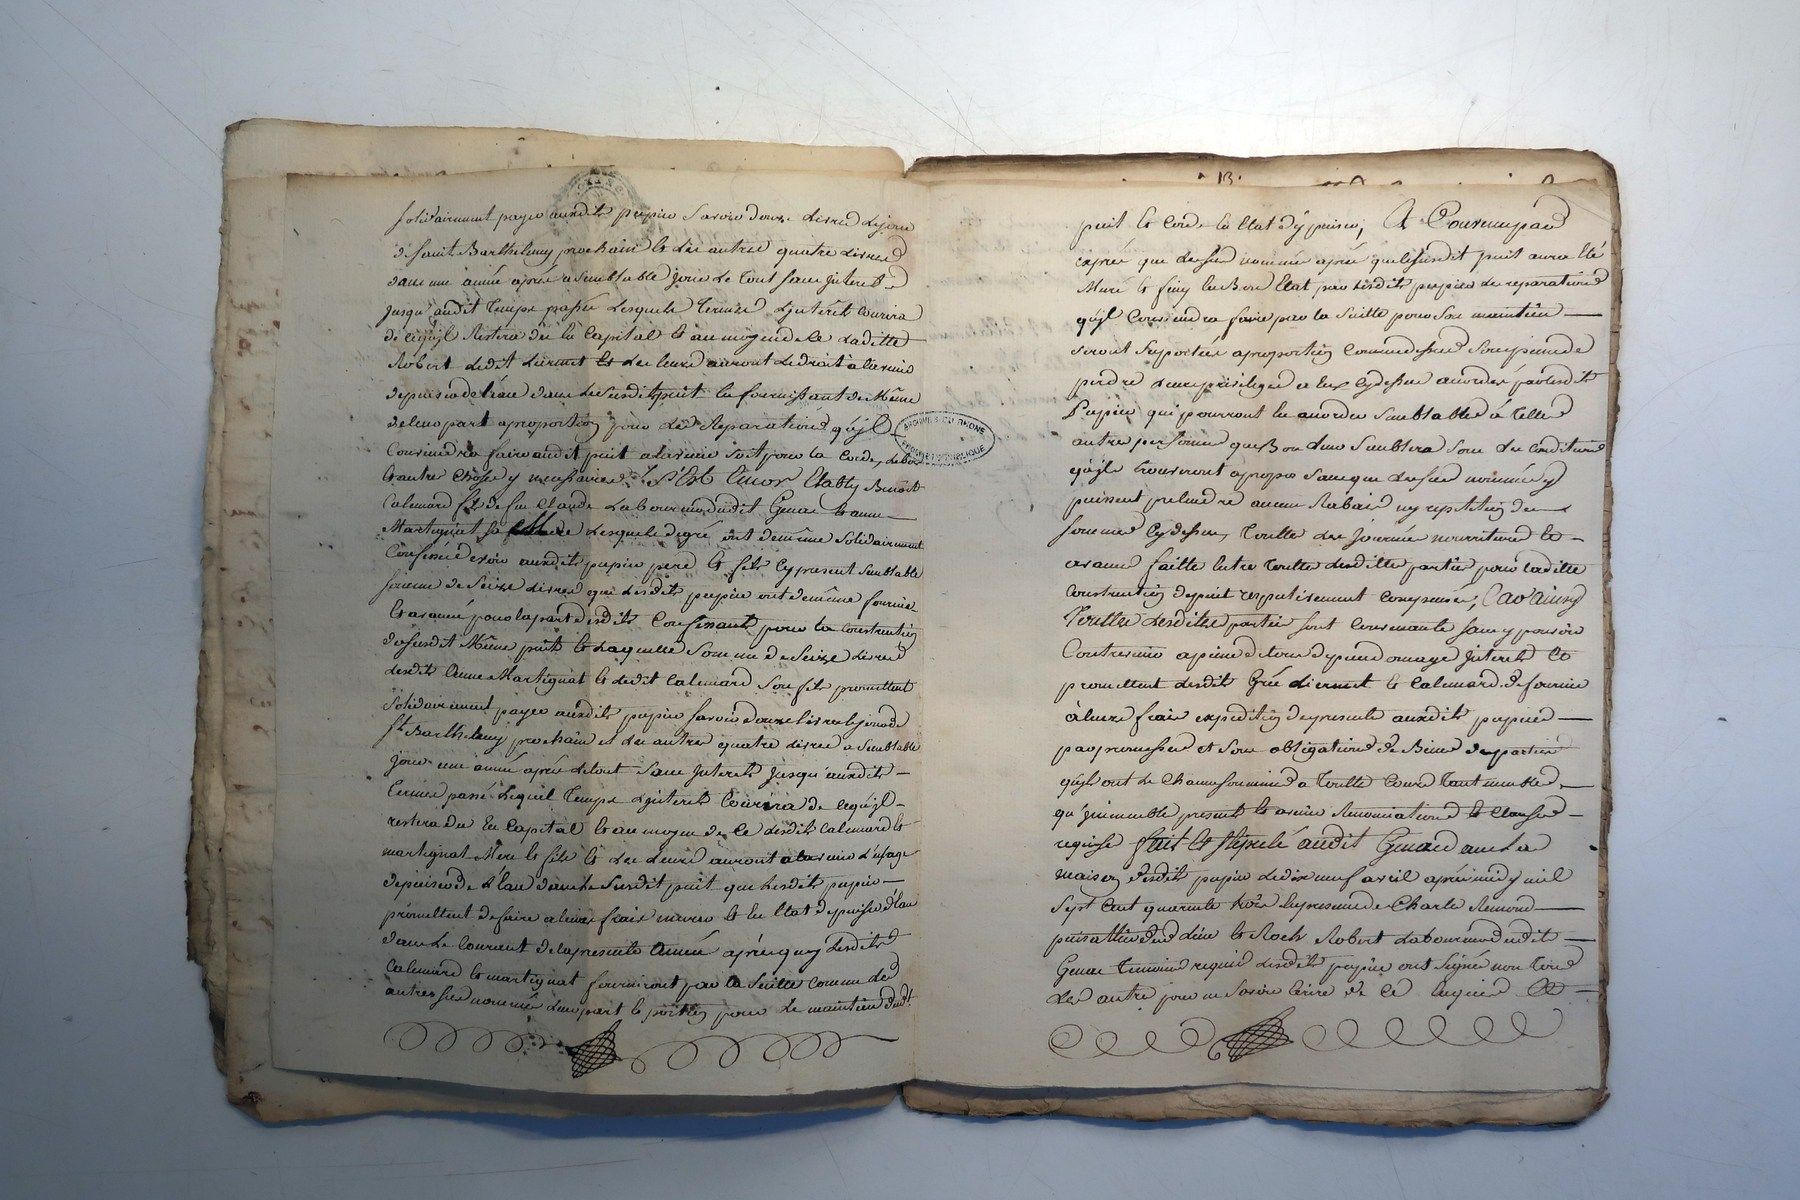 solidairement payer auxdits pupier savoir douze livres le jour
de saint Barthelemy prochain et les autres quatre livres
dans une année après a semblable jour le tout sans jnterets
jusqu'audit temps passés lesquels termes l'jnterêt courira
de ce qu'jl restera dû en capital et au moyen de ce laditte
Robert ledit diermet et les leurs auront le droit à l'avenir
de puiser de l'eau dans le susdit puit en fournissant de même
de leur part a proportion pour les Reparations qu'jl
Conviendra faire audit puit a l'avenir soit pour la Corde,
et autre chose y necessaires. S'Est Encor Etably Benoit
Calemard fils de feu Claude Laboureur dudit Genas et anne
Martignat sa mere lesquels de gré ont de même solidairement
Confessé devoir auxdits pupier pere et fils cy present semblable
somme de Seize livres que lesdits pupier ont de même fournie
et avancé pour la part desdits Confessants pour la Construction
dususdit même puit et laquelle somme de Seize livres
lesdits Anne Martignat et ledit Calemard son fils promettent
solidairement payer auxdits pupier savoir douze livres le jour de
st Barthelemy prochain et les autres quatre livres a semblable
jour une année après le tout sans jnterets jusqu'auxdits
termes passé lequel temps l'jnterets courira de ce qu'jl
restera du en Capital et au moyen de ce lesdits Calemard et
martignat Mere et fils et les leurs auront a l'avenir l'usage
de puiser de l'eau dans le susdit puit que lesdits pupier
promettent de faire a leurs frais murer et en Etat de puiser d'eau
dans le Courant de la presente Année après quoy lesdits
Calemard et martignat fourniront par la suitte comme les
autres sus nommés leur part et portion pour le maintien dudt
13.
puit et Corde et Etat d'y puiser, Et Convenu par
exprés que les sus nommés après que le susdit puit aura été
Muré et finy en Bon Etat par lesdits pupier les reparations
qu'jl Conviendra faire par la suitte pour son maintien
seront supportées a proportion Comme dessus sous peine de
perdre leurs privileges a Eux cy dessus accordés par lesdits
Pupier qui pourront en accorder semblables à telles
autre personnes que Bon leur semblera sous les conditions
qu'jls trouveront a propos sans que les sus nommés y
puissent pretendre aucun Rabais ny repetition des
sommes cy dessus, toutte les journées nourritures et
avance faitte entre touttes lesdittes parties pour laditte
Construction de puit respectivement compensées, Car ainsy
Touttes lesdittes parties sont convenantes sans y pouvoir
Contrevenir a peine de tous depens domages jnterets Et
promettent lesdits Gré diermet et Calemard de fournir
à leurs frais expedition des presente auxdits pupier
par promesses et sous obligations de Biens des parties
qu'jls ont de Chacun soumis a toutte Cours tant meuble
qu'jmmeuble present et avenir Renonciations et clauses
requise fait et stipulé audit Genas en la
maison desdits pupier le dix neuf avril après midy mil
sept cent quarente trois En presence de Charle Remond
et Roch Robert Laboureur dudit
Genas Temoins requis lesdits pupier ont signé non tous
les autre pour ne savoir Ecrire de ce Enquis Et